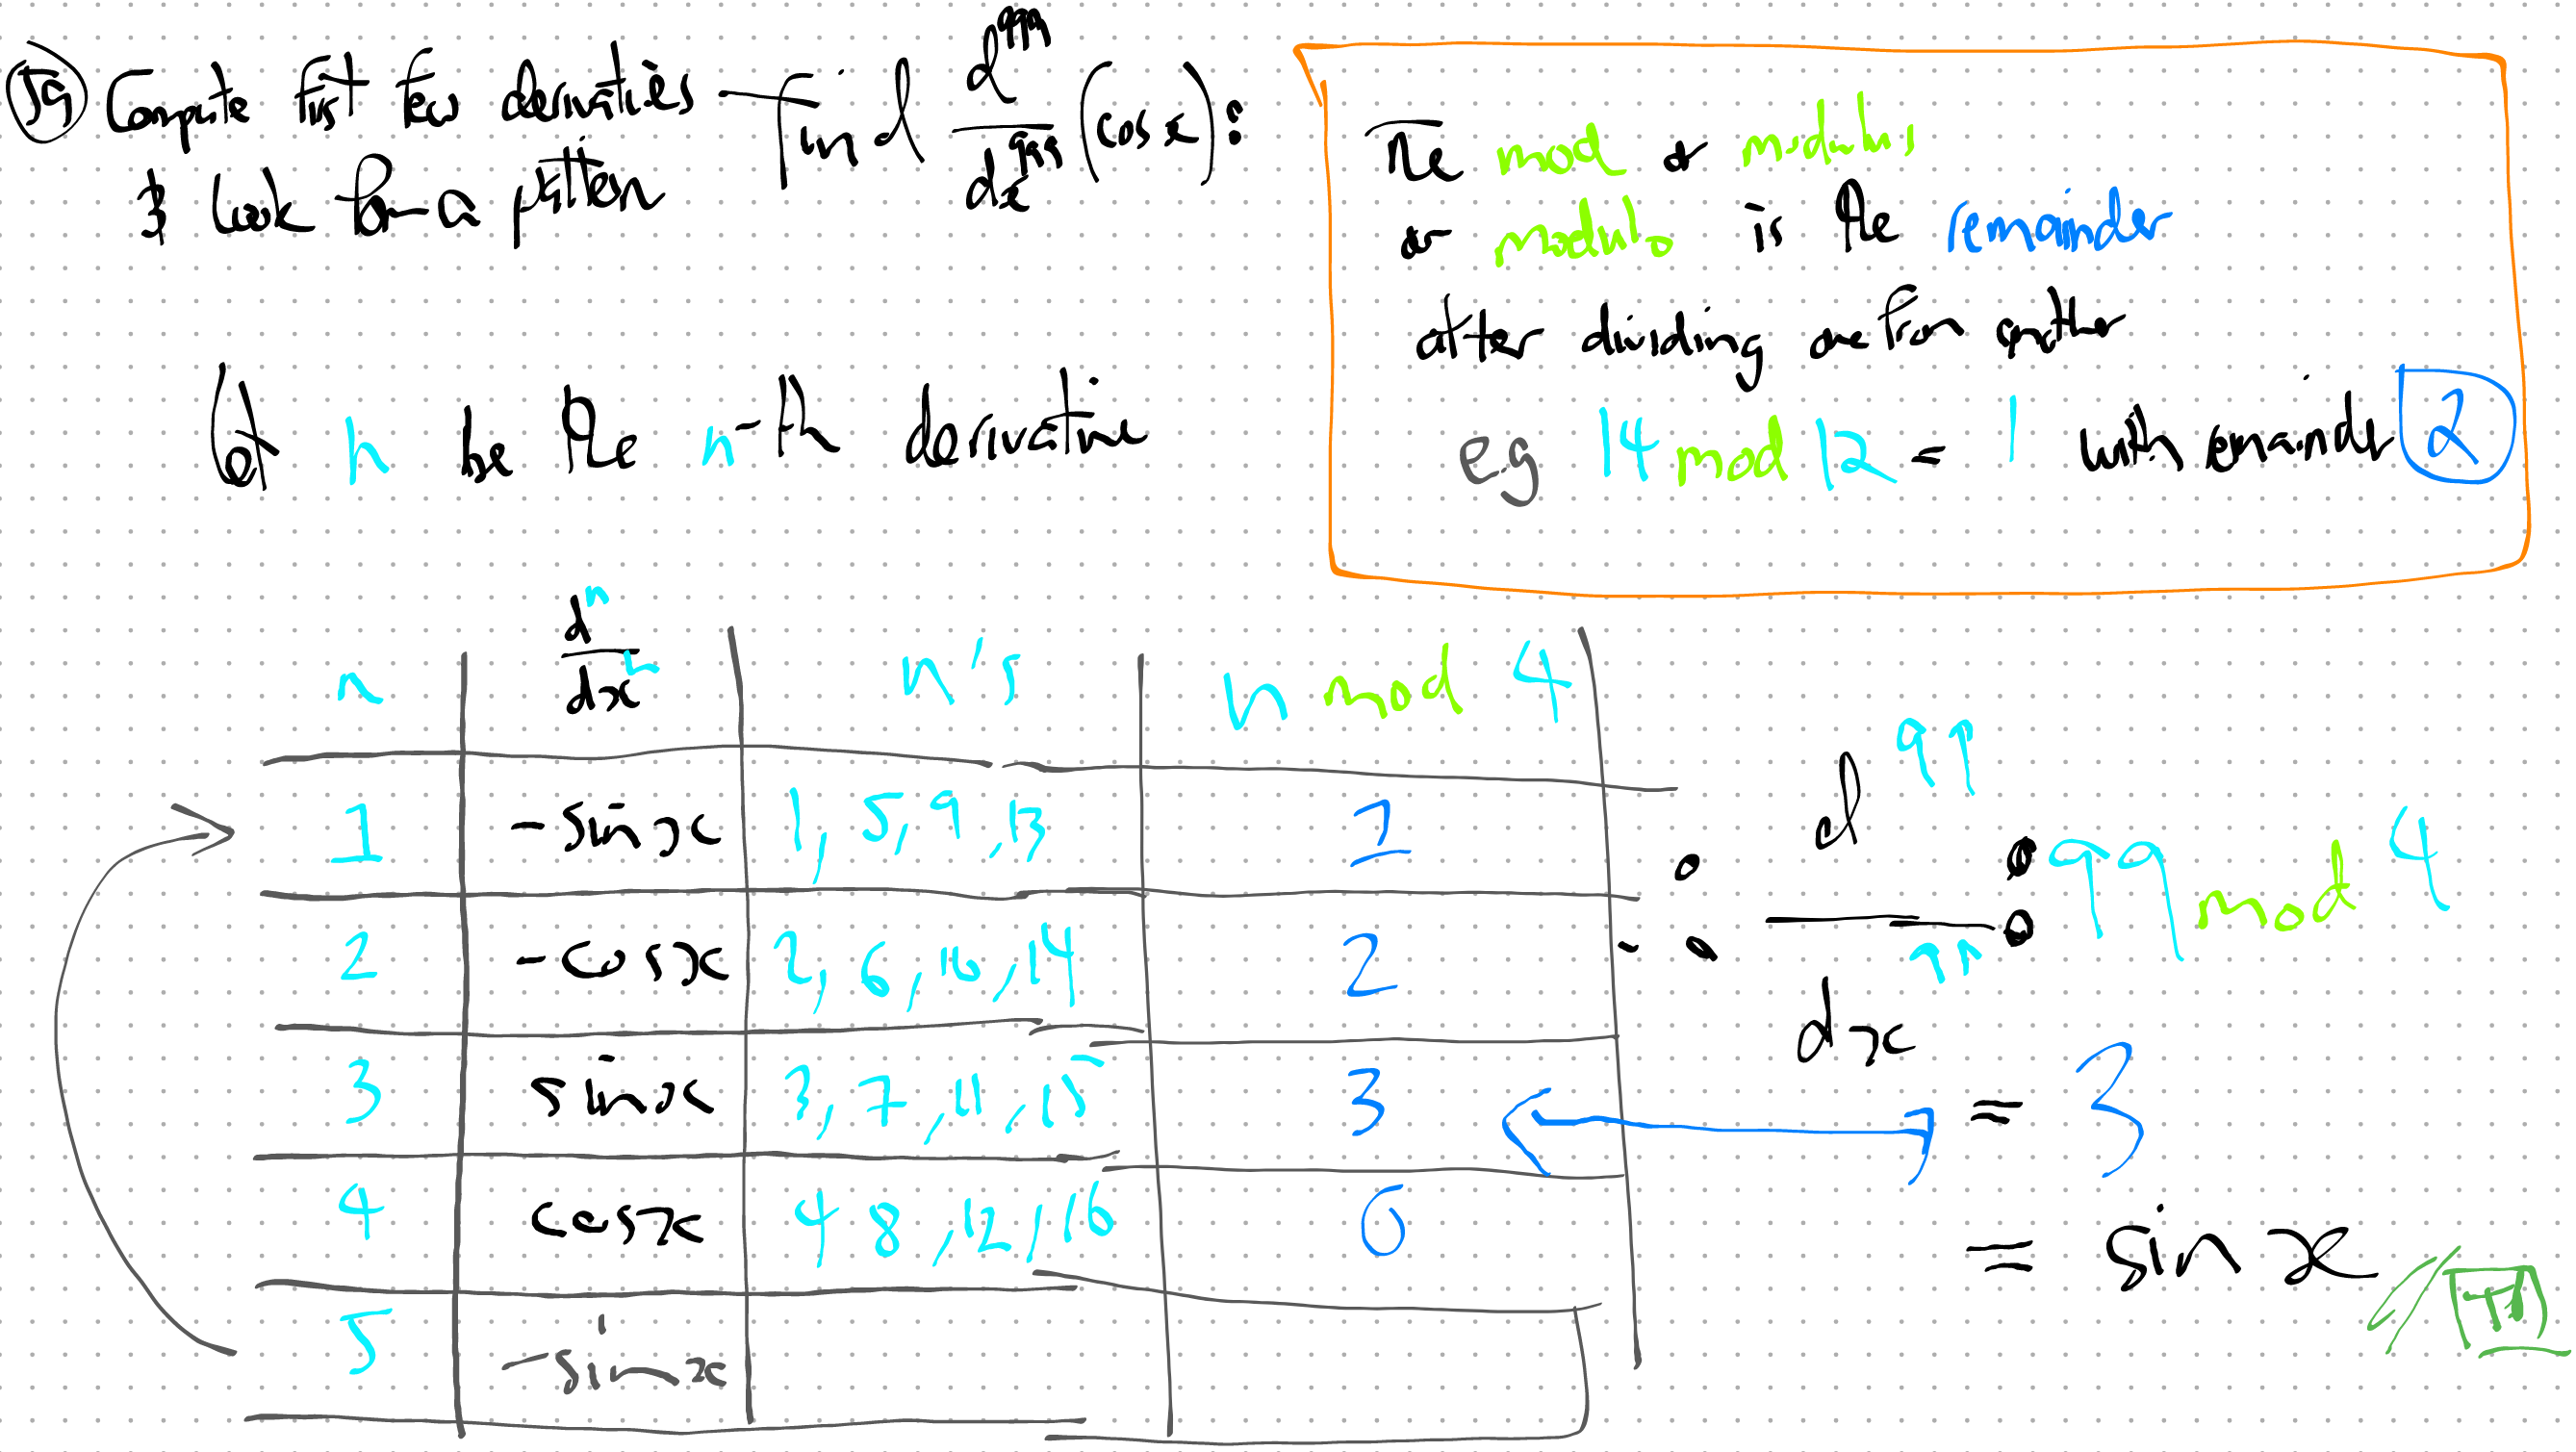 59 Compute first few derivatives - find d^999/dx^999 (cos x):
& look for a pattern
The mod or modulus
or modulo is the remainder
after dividing one from another
eg 14 mod 12 = 1 with remainder 2
let n be the n-th derivative
n d^n/dx^n n's n mod 4
1 -sin x 1, 5, 9, 13 1
2 -cos x 2, 6, 10, 14 2
3 sin x 3, 7, 11, 15 3
4 cos x 4 8, 12, 16 0
5 -sin x
∴ d^99/dx^99 : 99 mod 4
= 3
= sin x